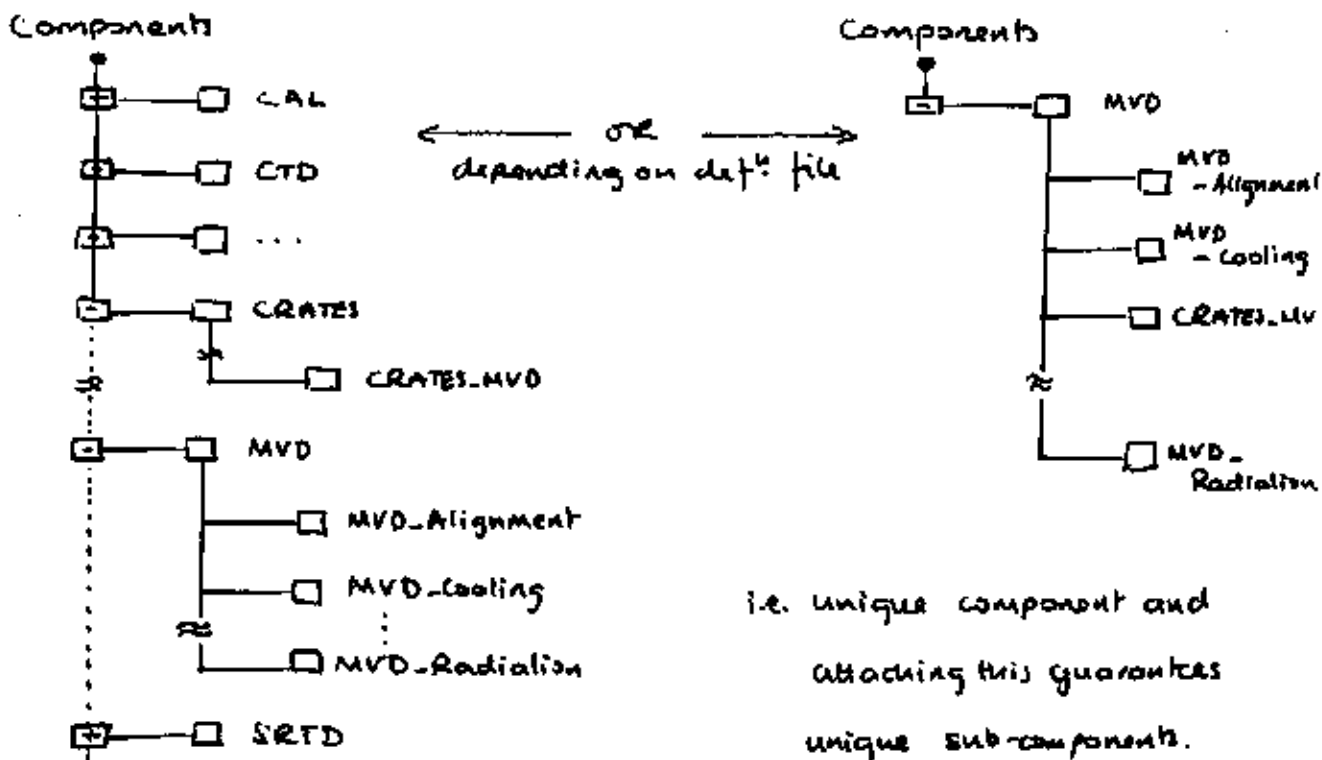 Components
CAL
CTD
...
CRATES
CRATES_MVD
MVD
MVD_Alignment
MVD_Cooling
MVD_Radiation
SRTD
← or →
depending on defⁿ. file
Components
MVD
MVD
-Alignment
MVD
-Cooling
CRATES_MV
MVD_
Radiation
i.e. unique component and
attaching this guarantees
unique sub-components.